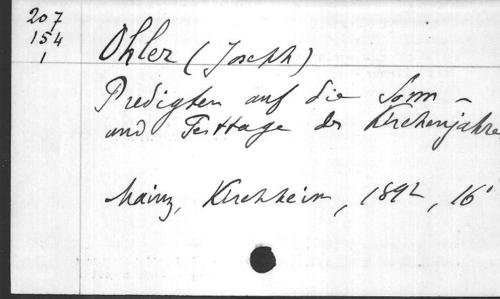 207
154
1
Ohler (Joseph)
Predigten auf die Sonn-
und Festtage des Kirchenjahre
Mainz, Kirchheim, 1892, 16°